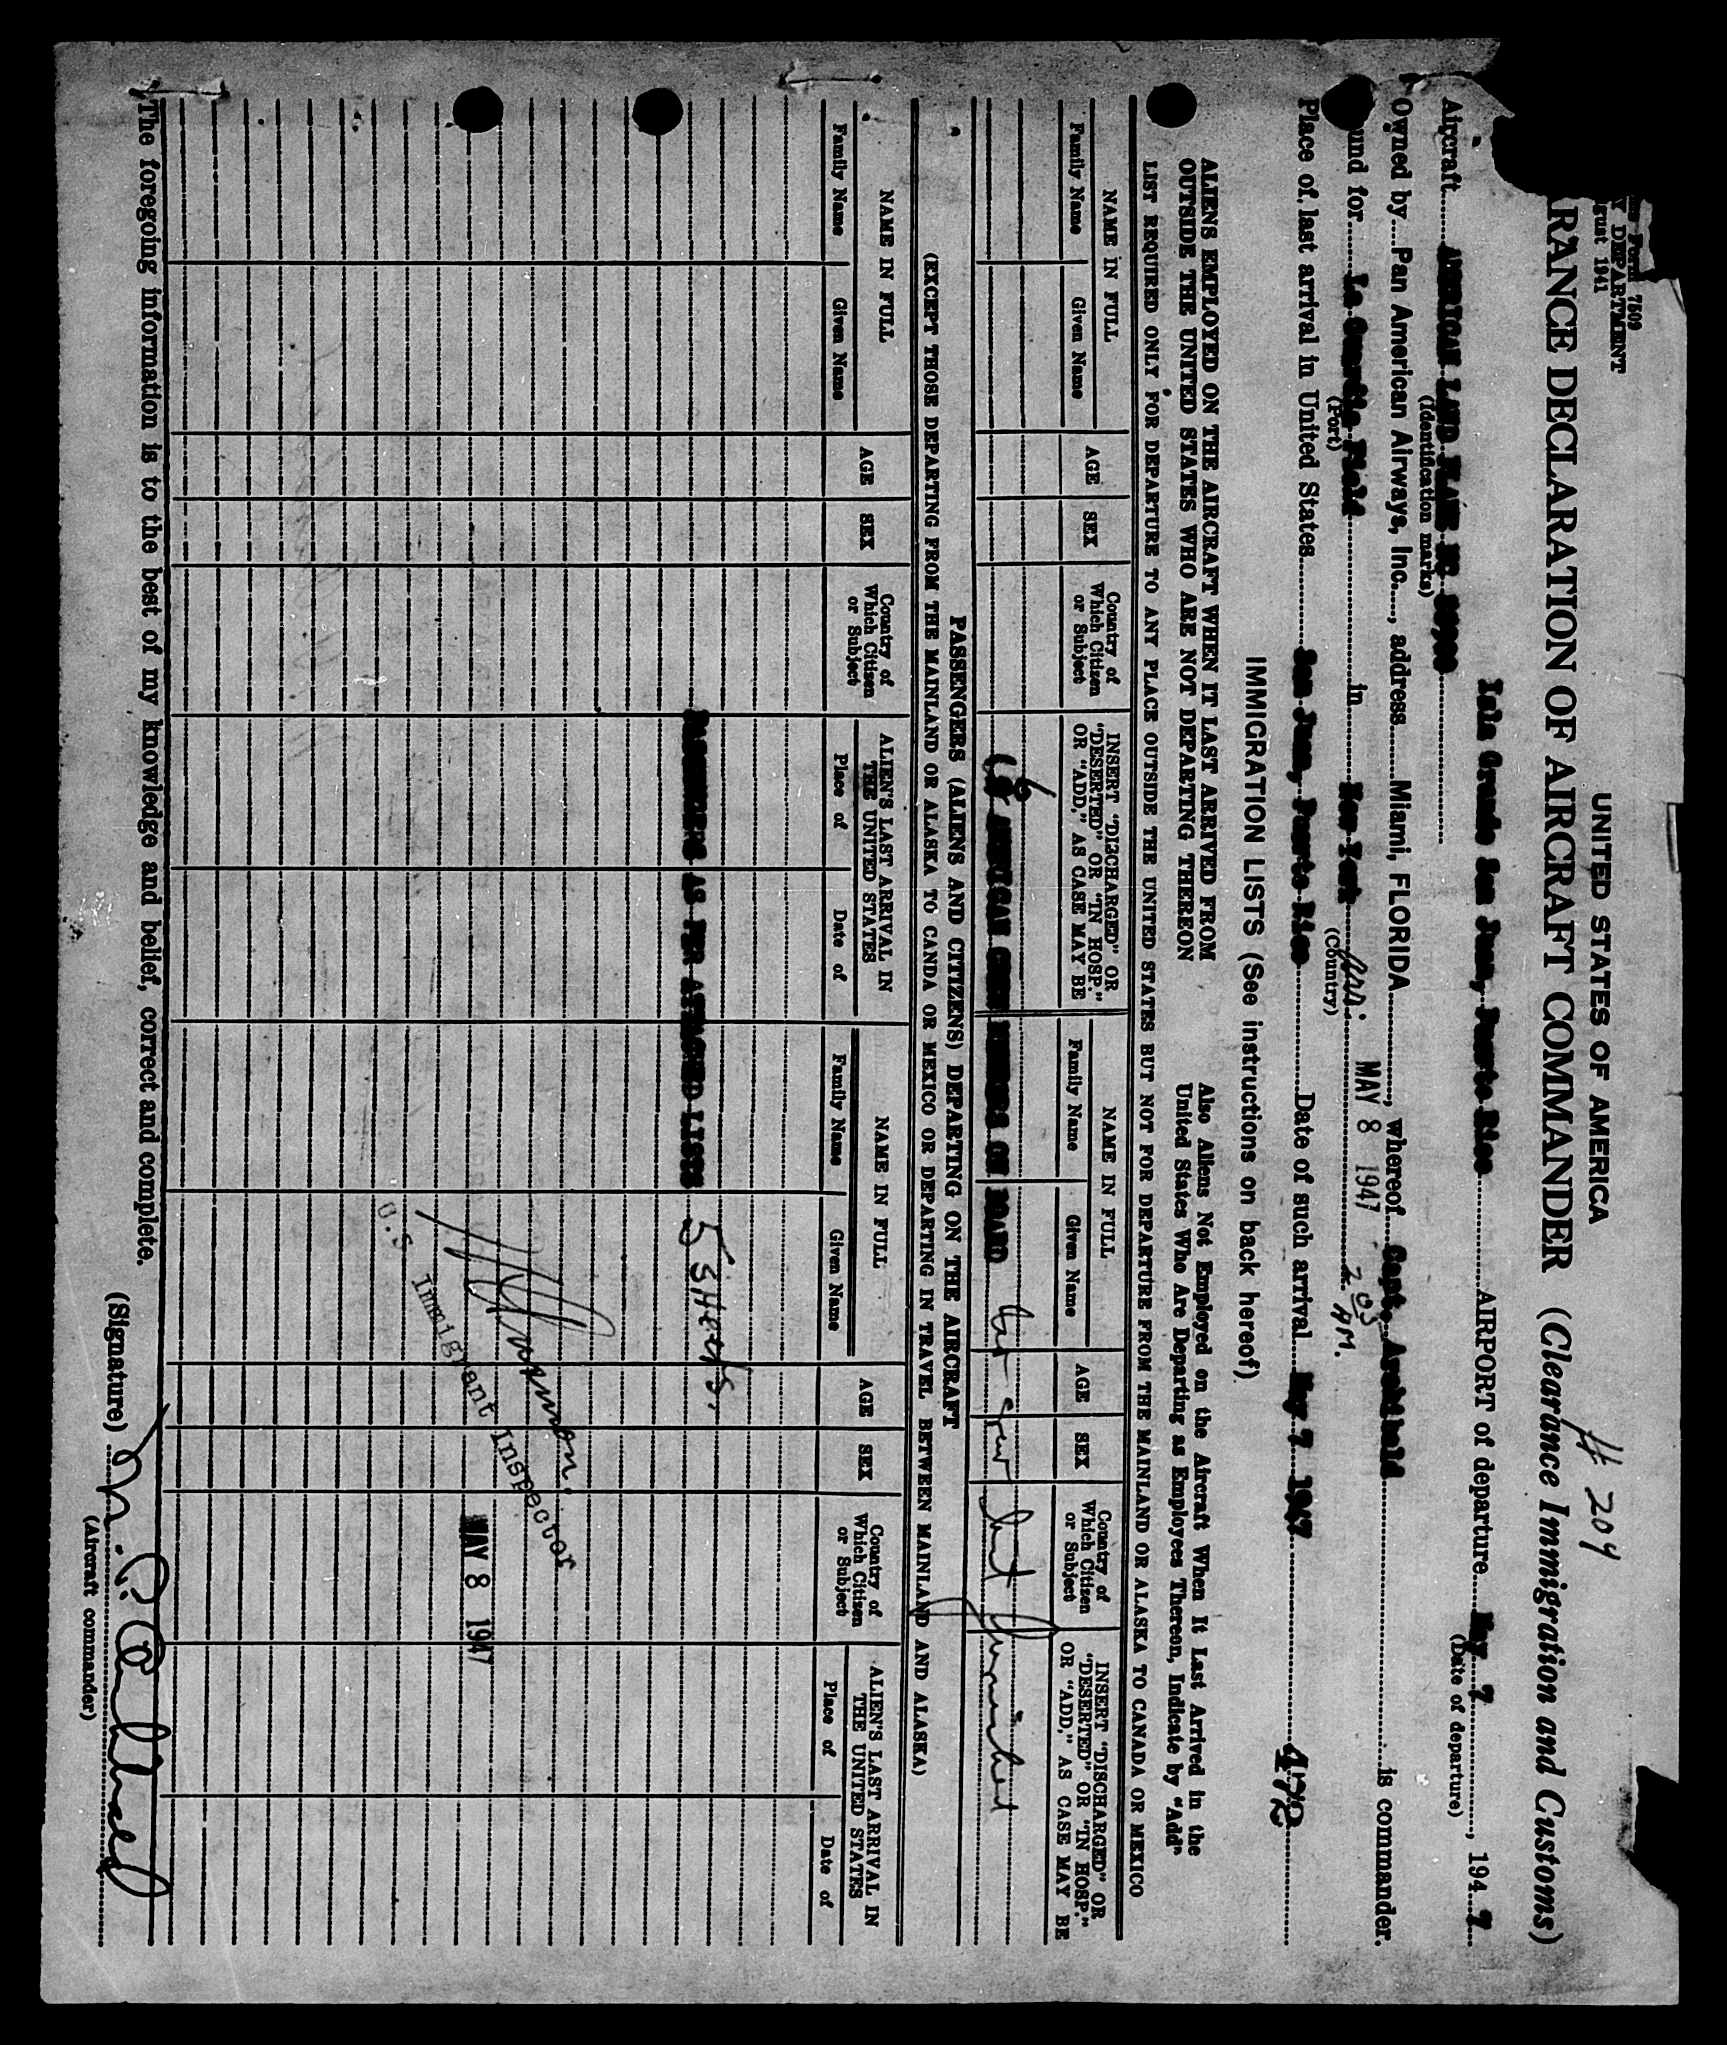 Form 7509
DEPARTMENT
gust 1941
UNITED STATES OF AMERICA
# 209
RANCE DECLARATION OF AIRCRAFT COMMANDER (Clearance Immigration and Customs)
Isla Grande San Juan, Puerto Rico AIRPORT of departure May 7, 1947
(Date of departure)
Aircraft AMERICAN LAND PLANE NC
(Identification marks)
Owned by Pan American Airways, Inc., address Miami, FLORIDA, whereof Capt. Archibald is commander.
und for La Guardia Field in New York
(Port)
(Country)
MAY 8 1947
2 03 AM.
Place of last arrival in United States San Juan, Puerto Rico Date of such arrival May 7 1947 472
IMMIGRATION LISTS (See instructions on back hereof)
ALIENS EMPLOYED ON THE AIRCRAFT WHEN IT LAST ARRIVED FROM
OUTSIDE THE UNITED STATES WHO ARE NOT DEPARTING THEREON
Also Aliens Not Employed on the Aircraft When It Last Arrived in the
United States Who Are Departing as Employees Thereon, Indicate by "Add"
LIST REQUIRED ONLY FOR DEPARTURE TO ANY PLACE OUTSIDE THE UNITED STATES BUT NOT FOR DEPARTURE FROM THE MAINLAND OR ALASKA TO CANADA OR MEXICO
NAME IN FULL
Family Name
Given Name
AGE
SEX
Country of
Which Citizen
or Subject
INSERT "DISCHARGED" OR
"DESERTED" OR "IN HOSP."
OR "ADD," AS CASE MAY BE
NAME IN FULL
Family Name
Given Name
AGE
SEX
Country of
Which Citizen
or Subject
INSERT "DISCHARGED" OR
"DESERTED" OR "IN HOSP."
OR "ADD," AS CASE MAY BE
6
AMERICAN CREW MEMBERS ON BOARD crew list furnished
PASSENGERS (ALIENS AND CITIZENS) DEPARTING ON THE AIRCRAFT
(EXCEPT THOSE DEPARTING FROM THE MAINLAND OR ALASKA TO CANDA OR MEXICO OR DEPARTING IN TRAVEL BETWEEN MAINLAND AND ALASKA)
NAME IN FULL
Family Name
Given Name
AGE
SEX
Country of
Which Citizen
or Subject
ALIEN'S LAST ARRIVAL IN
THE UNITED STATES
Place of
Date of
NAME IN FULL
Family Name
Given Name
AGE
SEX
Country of
Which Citizen
or Subject
ALIEN'S LAST ARRIVAL IN
THE UNITED STATES
Place of
Date of
PASSENGERS AS PER ATTACHED LISTS 5 SHeets.
U.S Immigrant Inspector
MAY 8 1947
The foregoing information is to the best of my knowledge and belief, correct and complete.
(Signature)
(Aircraft commander)